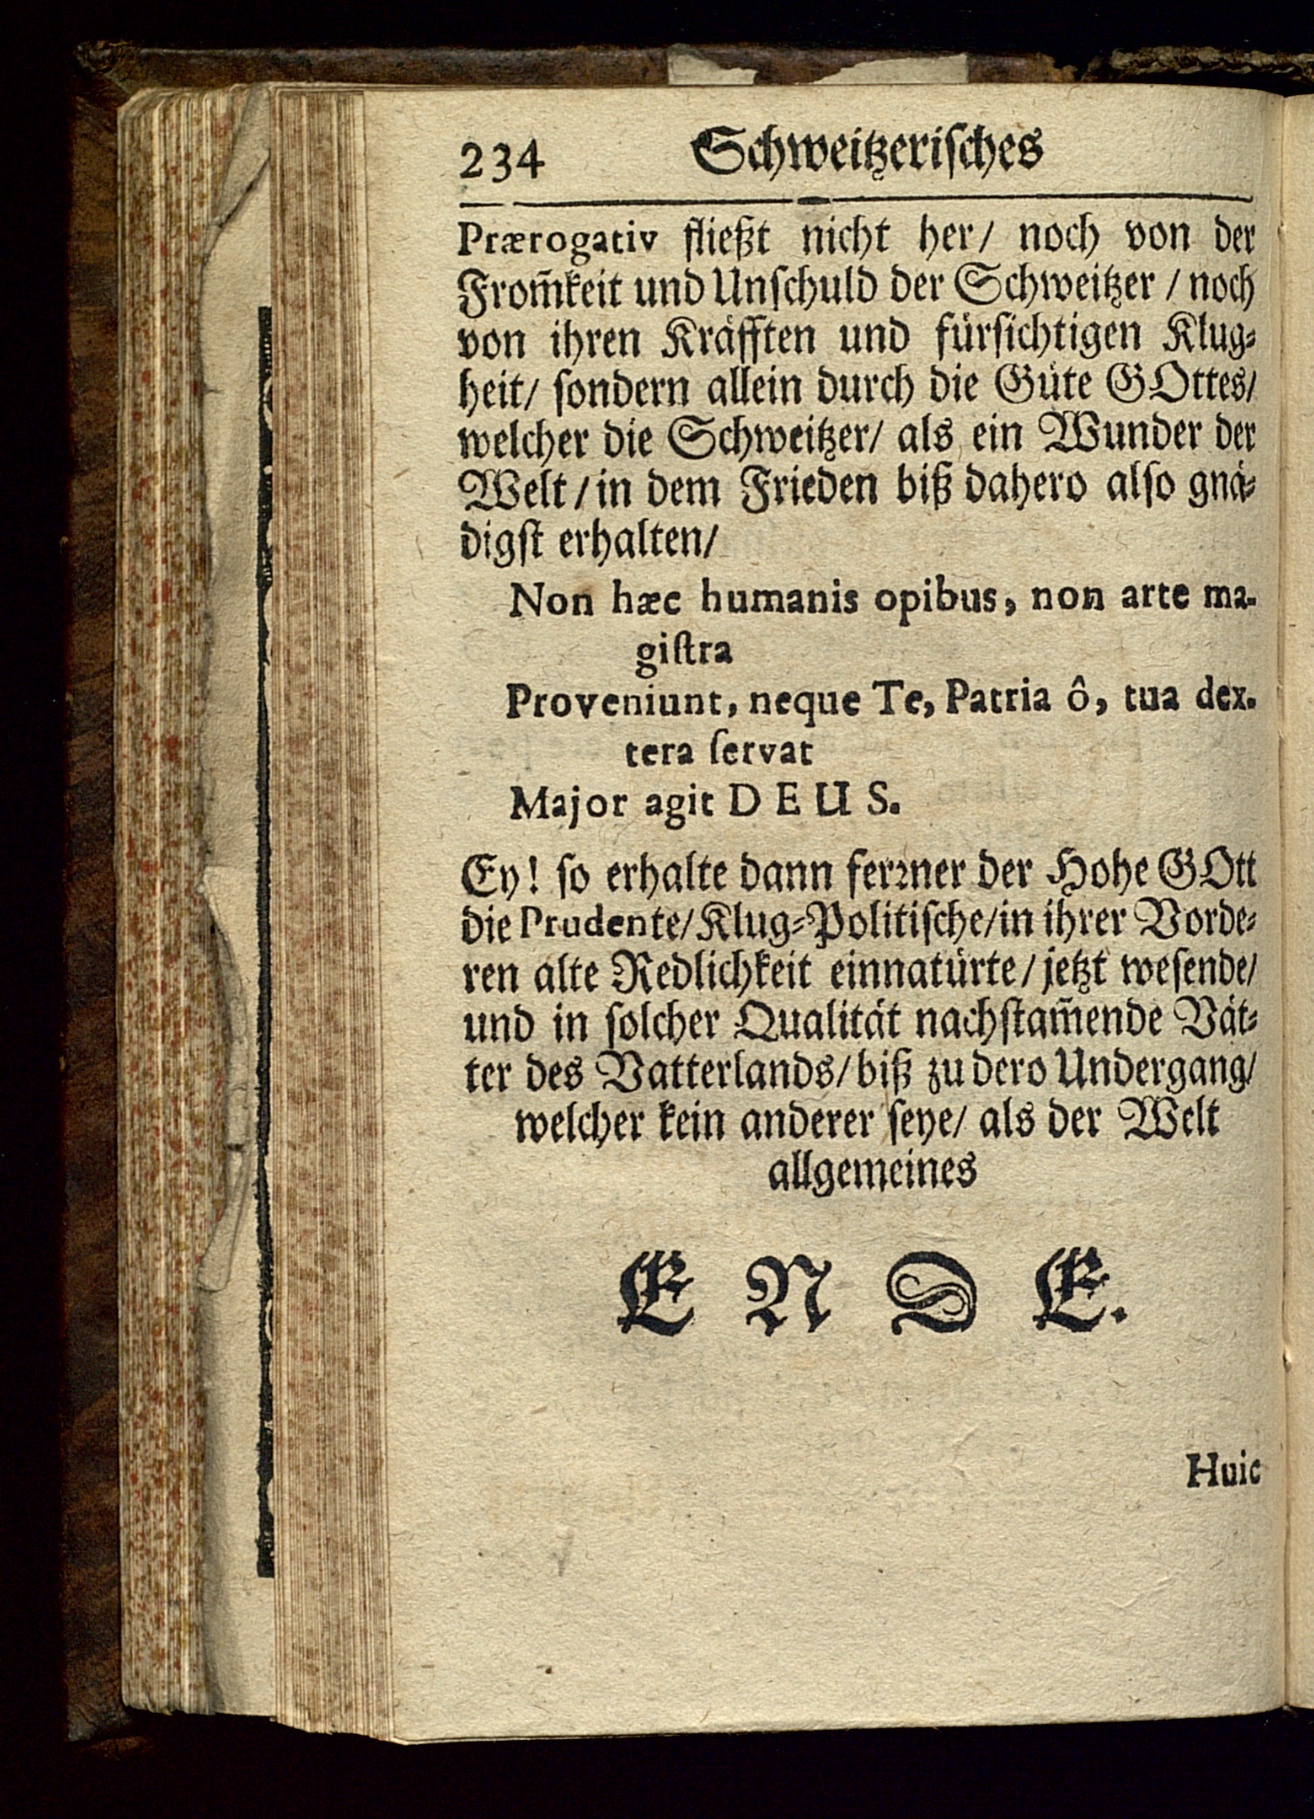 234 Schweitzerisches
Prærogativ fließt nicht her/ noch von der
From̃keit und Unschuld der Schweitzer / noch
von ihren Kräfften und fürsichtigen Klug⸗
heit/ sondern allein durch die Güte GOttes/
welcher die Schweitzer/ als ein Wunder der
Welt / in dem Frieden biß dahero also gnä⸗
digst erhalten/
Non hæc humanis opibus, non arte ma-
gistra
Proveniunt, neque Te, Patria ô, tua dex-
tera servat
Major agit DEUS.
Ey! so erhalte dann ferꝛner der Hohe GOtt
die Prudente/ Klug⸗Politische/ in ihrer Vorde⸗
ren alte Redlichkeit einnatürte/ jetzt wesende/
und in solcher Qualität nachstam̃ende Vät⸗
ter des Vatterlands/ biß zu dero Undergang/
welcher kein anderer seye/ als der Welt
allgemeines
ENDE.
Huic